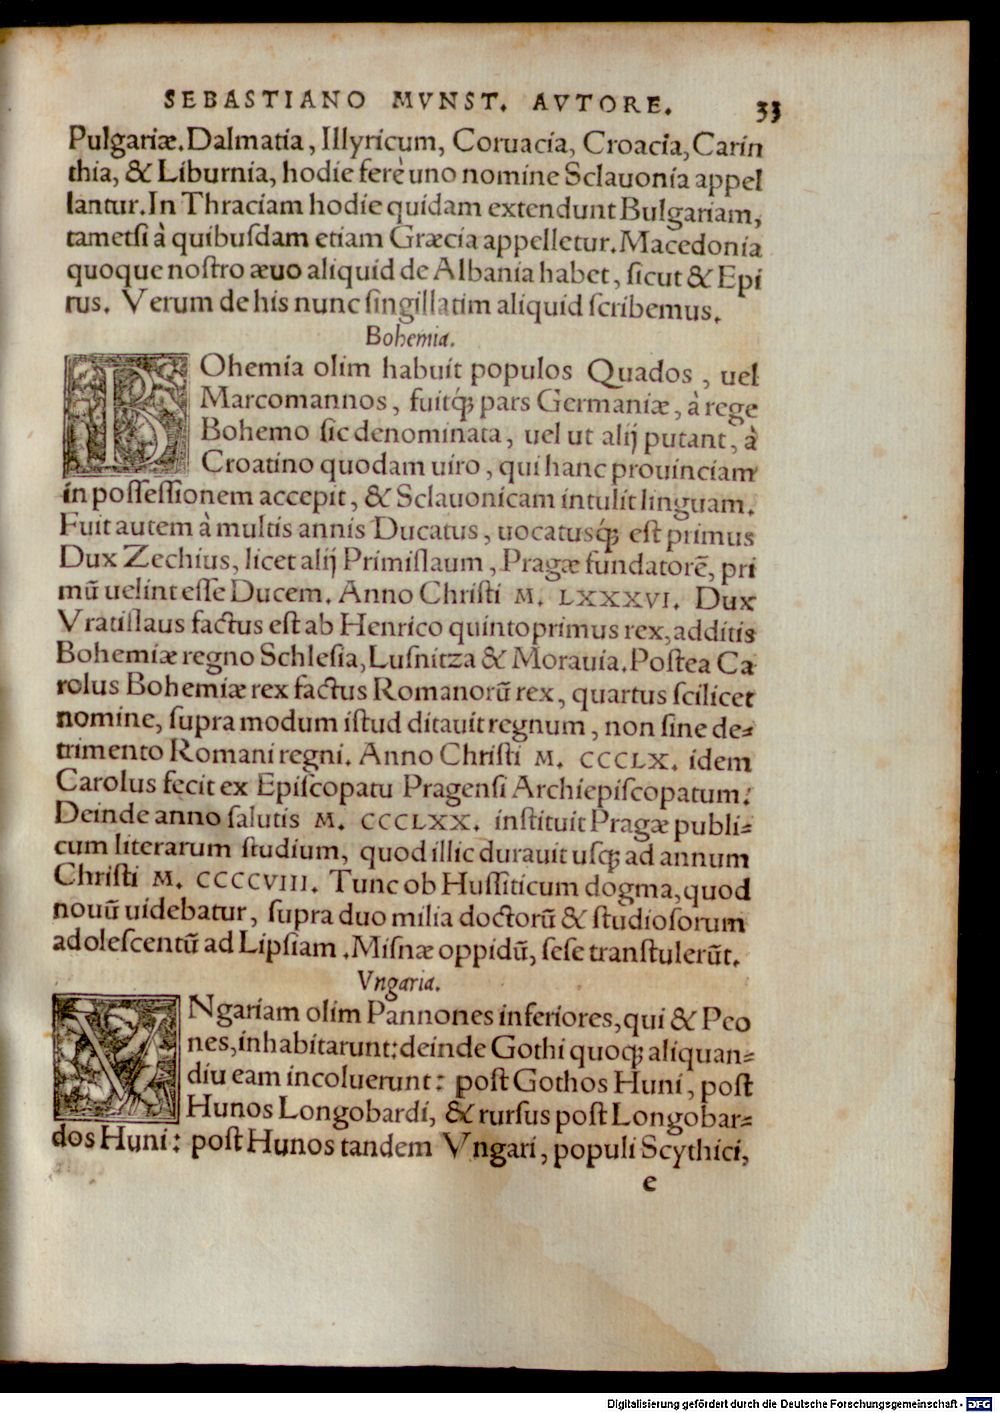 SEBASTIANO MVNST. AVTORE. 33
Pulgariæ. Dalmatia, Illyricum, Coruacia, Croacia, Carin
thia, & Liburnia, hodie ferè uno nomine Sclauonia appel
lantur. In Thraciam hodie quidam extendunt Bulgariam,
tametſi à quibuſdam etiam Græcia appelletur. Macedonia
quoque noſtro æuo aliquid de Albania habet, ſicut & Epi
rus. Verum de his nunc ſingillatim aliquid ſcribemus.
Bohemia.
BOhemia olim habuit populos Quados, uel
Marcomannos, fuitq́; pars Germaniæ, à rege
Bohemo ſic denominata, uel ut alij putant, à
Croatino quodam uiro, qui hanc prouinciam
in poſſeſſionem accepit, & Sclauonicam intulit linguam.
Fuit autem à multis annis Ducatus, uocatusq́; eſt primus
Dux Zechius, licet alij Primiſlaum, Pragæ fundatorē, pri
mū uelint eſſe Ducem. Anno Chriſti M. LXXXVI. Dux
Vratiſlaus factus eſt ab Henrico quinto primus rex, additis
Bohemiæ regno Schleſia, Luſnitza & Morauia. Poſtea Ca
rolus Bohemiæ rex factus Romanorū rex, quartus ſcilicet
nomine, ſupra modum iſtud ditauit regnum, non ſine de⸗
trimento Romani regni. Anno Chriſti M. CCCLX. idem
Carolus fecit ex Epiſcopatu Pragenſi Archiepiſcopatum:
Deinde anno ſalutis M. CCCLXX. inſtituit Pragæ publi⸗
cum literarum ſtudium, quod illic durauit uſq; ad annum
Chriſti M. CCCCVIII. Tunc ob Huſſiticum dogma, quod
nouū uidebatur, ſupra duo milia doctorū & ſtudioſorum
adoleſcentū ad Lipſiam. Miſnæ oppidū, ſeſe tranſtulerūt.
Vngaria.
VNgariam olim Pannones inferiores, qui & Peo
nes, inhabitarunt: deinde Gothi quoq; aliquan⸗
diu eam incoluerunt: poſt Gothos Huni, poſt
Hunos Longobardi, & rurſus poſt Longobar⸗
dos Huni: poſt Hunos tandem Vngari, populi Scythici,
e
Digitalisierung gefördert durch die Deutsche Forschungsgemeinschaft - DFG